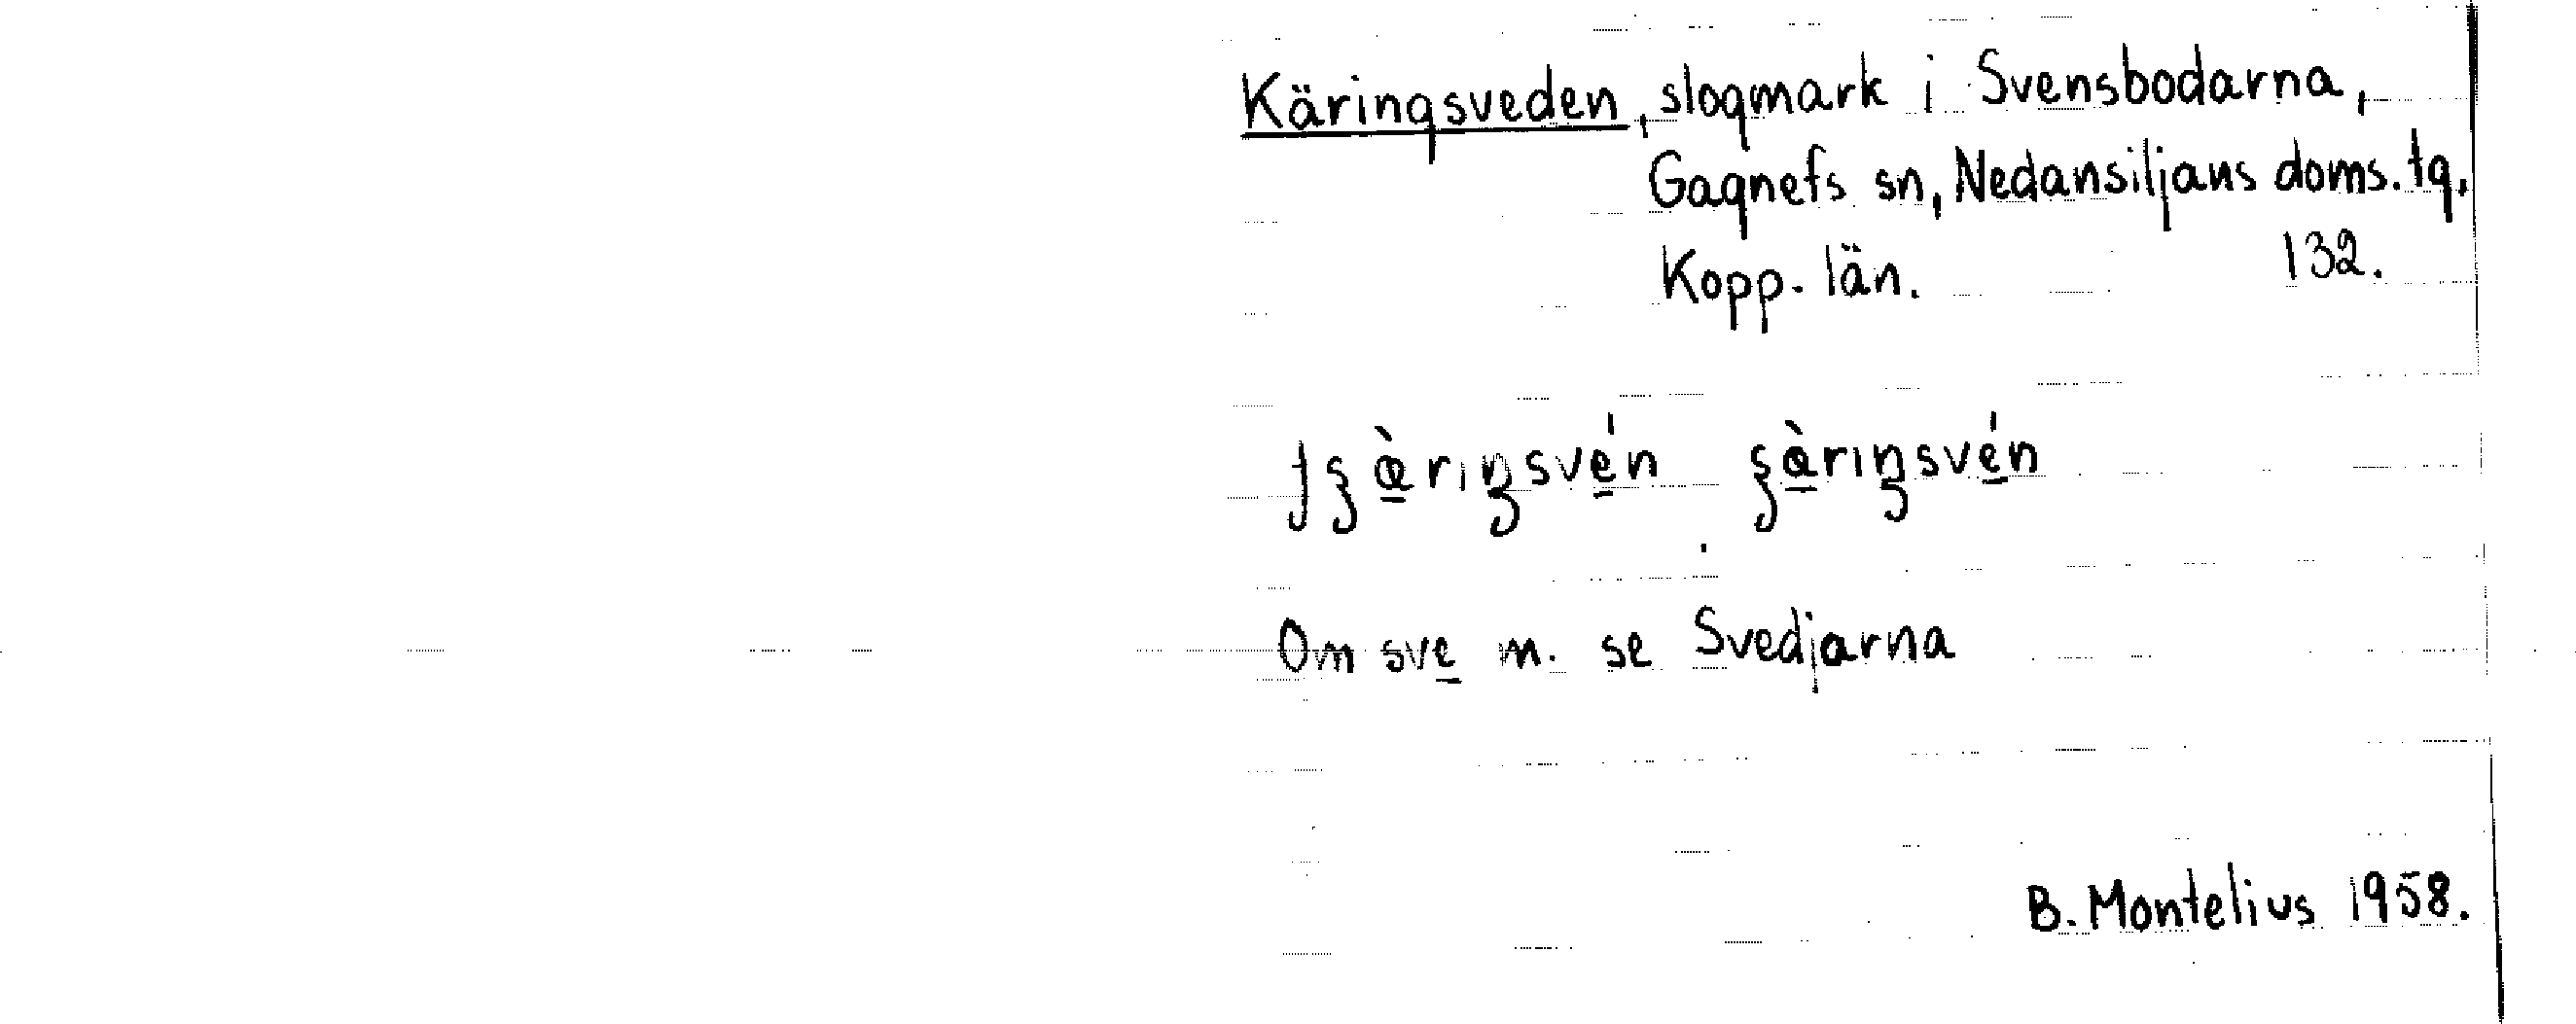 Käringsveden, slogmark i Svensbodarna,
Gagnefs sn, Nedansiljans doms. tg,
Kopp. län. 132.
Om sve m. se Svedjarna
B. Montelius 1958.